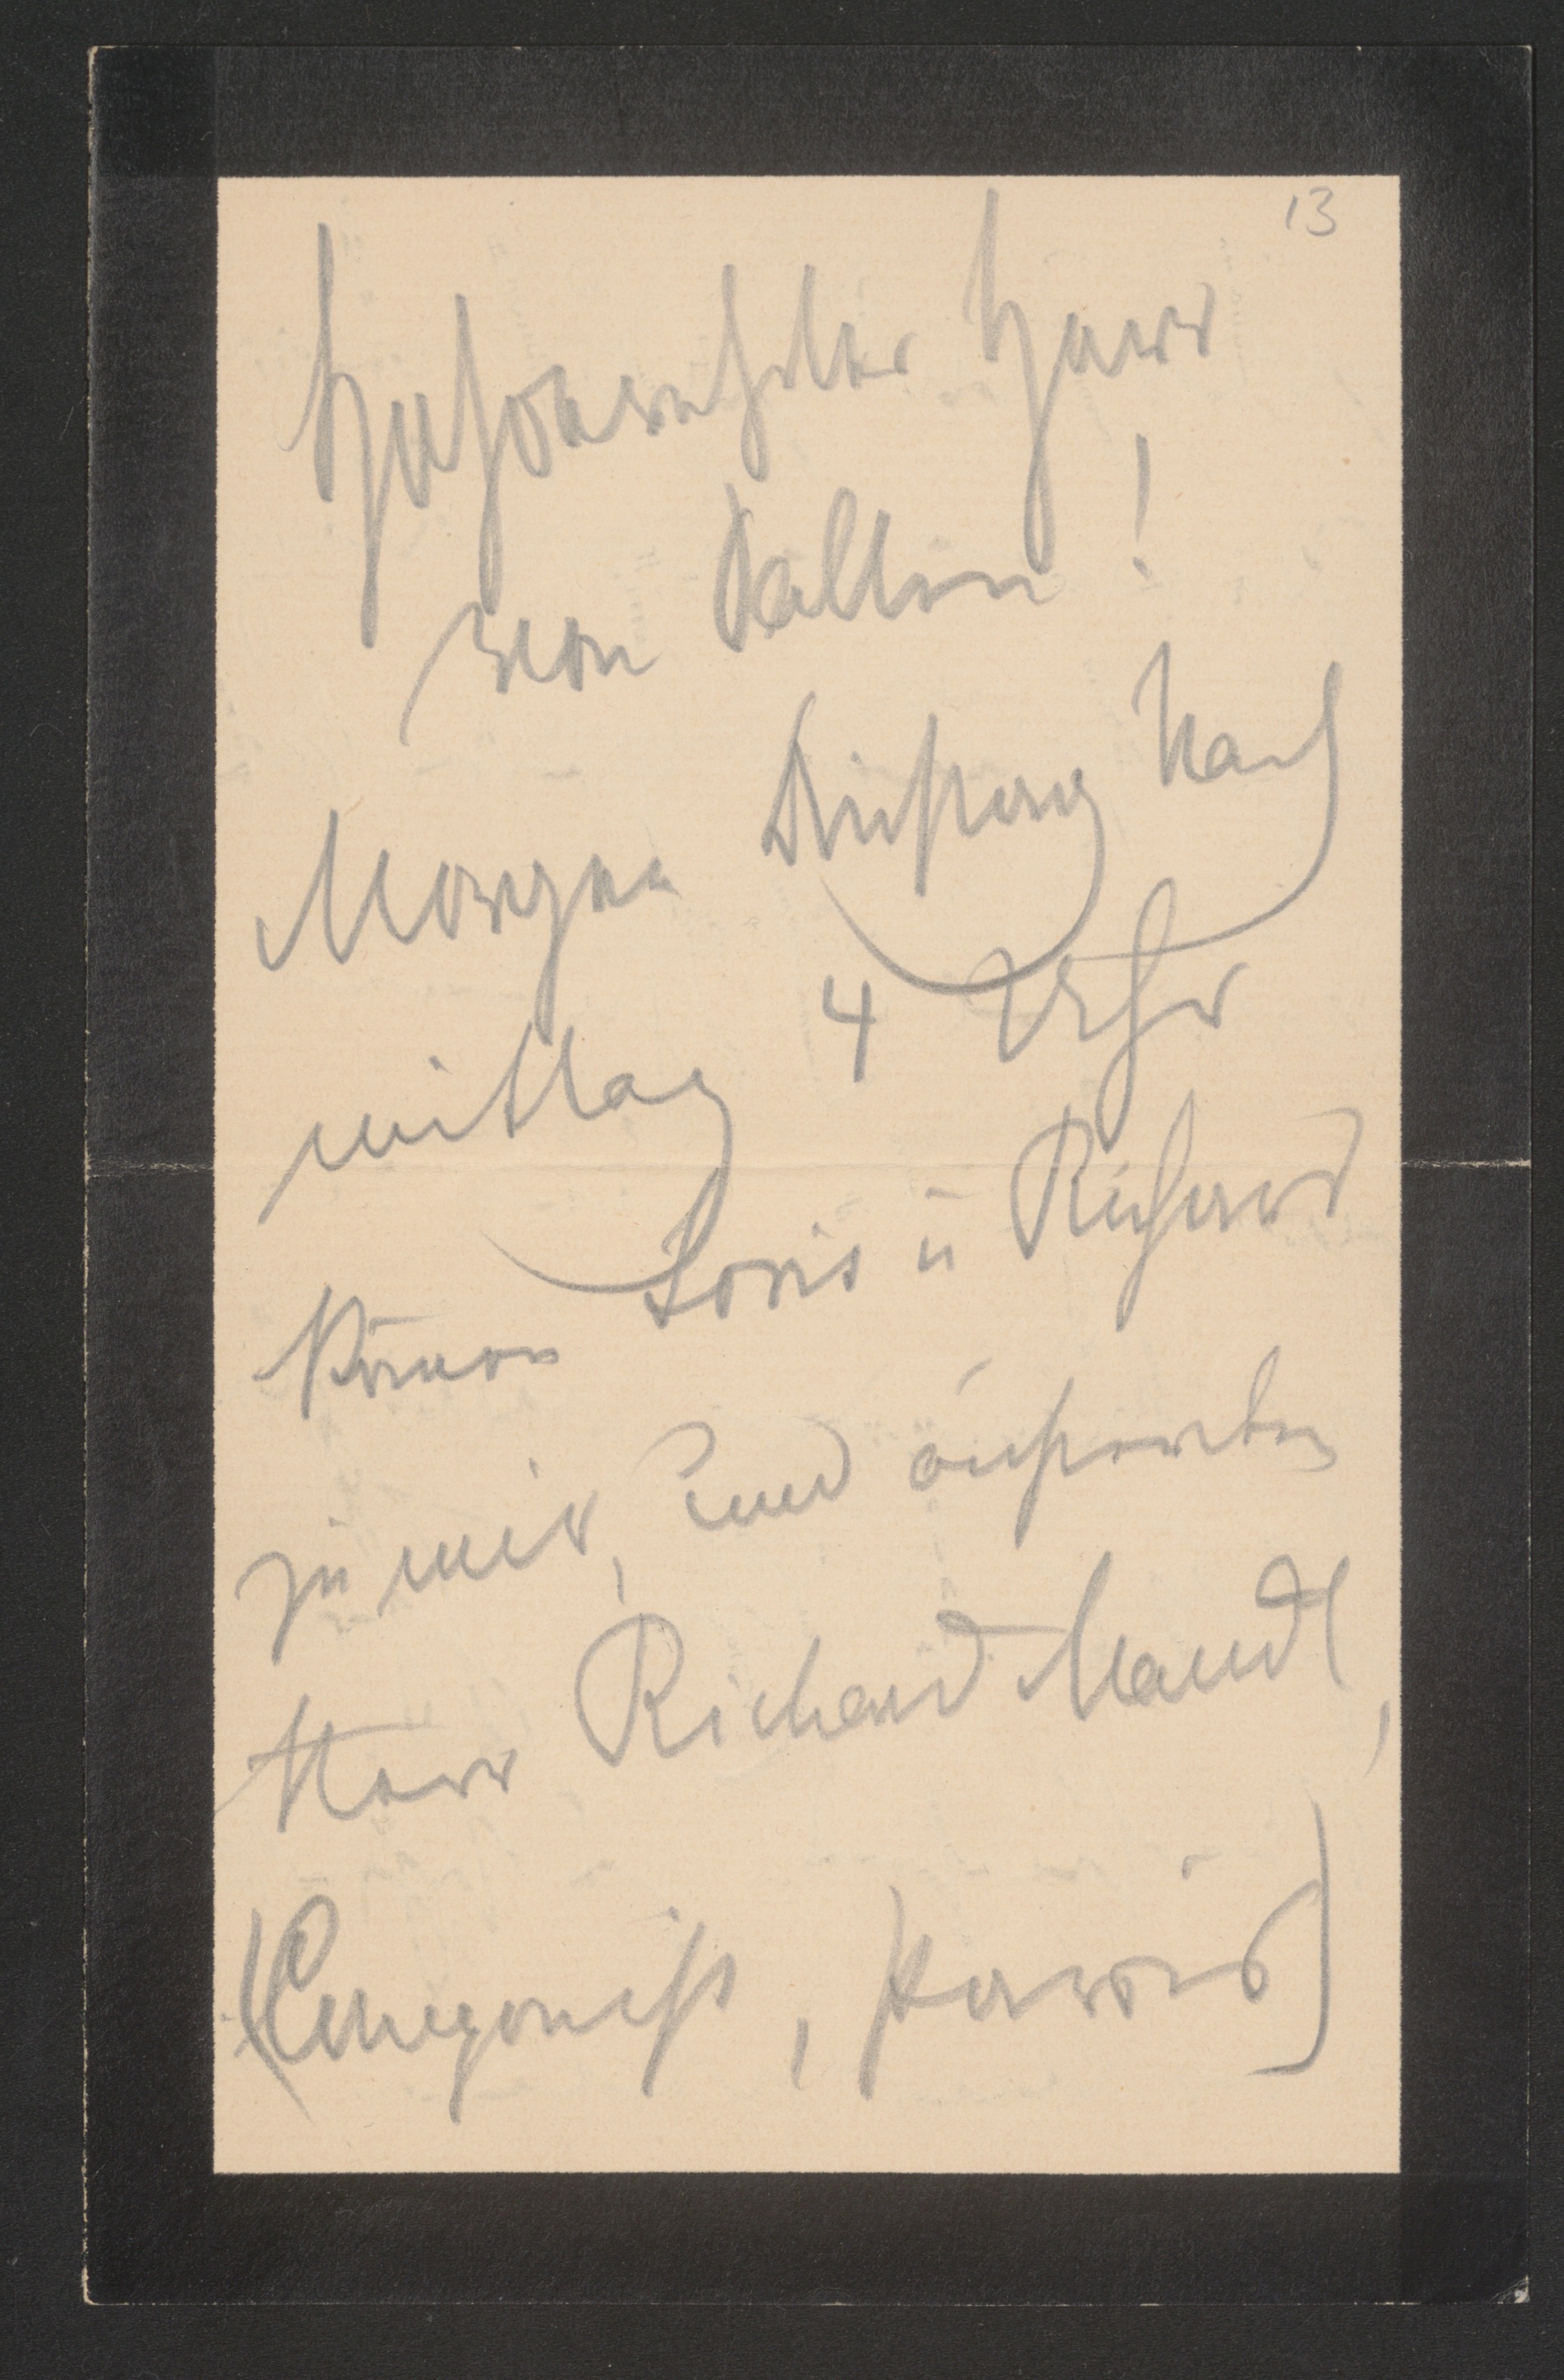 13
Hochverehrter Herr
von Salten!
Morgen Dinstag Nach
mittag 4 Uhr
Loris u Richard
zu mir, und außerdem
Herr Richard Mandl,
(Componist, Paris)